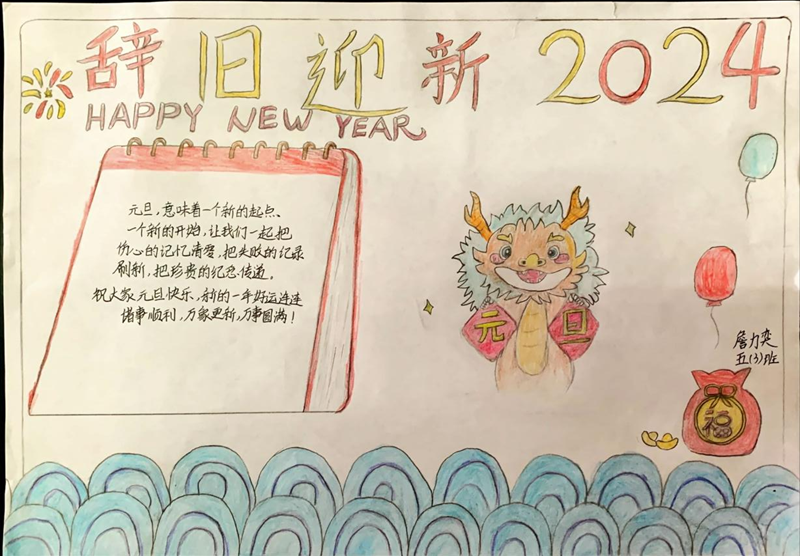 辞旧迎新 2024
HAPPY NEW YEAR
元旦,意味着一个新的起点、
一个新的开始,让我们一起把
伤心的记忆清零,把失败的记录
刷新,把珍贵的纪念传递。
祝大家元旦快乐,新的一年好运连连
诸事顺利,万象更新,万事圆满!
元旦
詹力奕
五(3)班
福